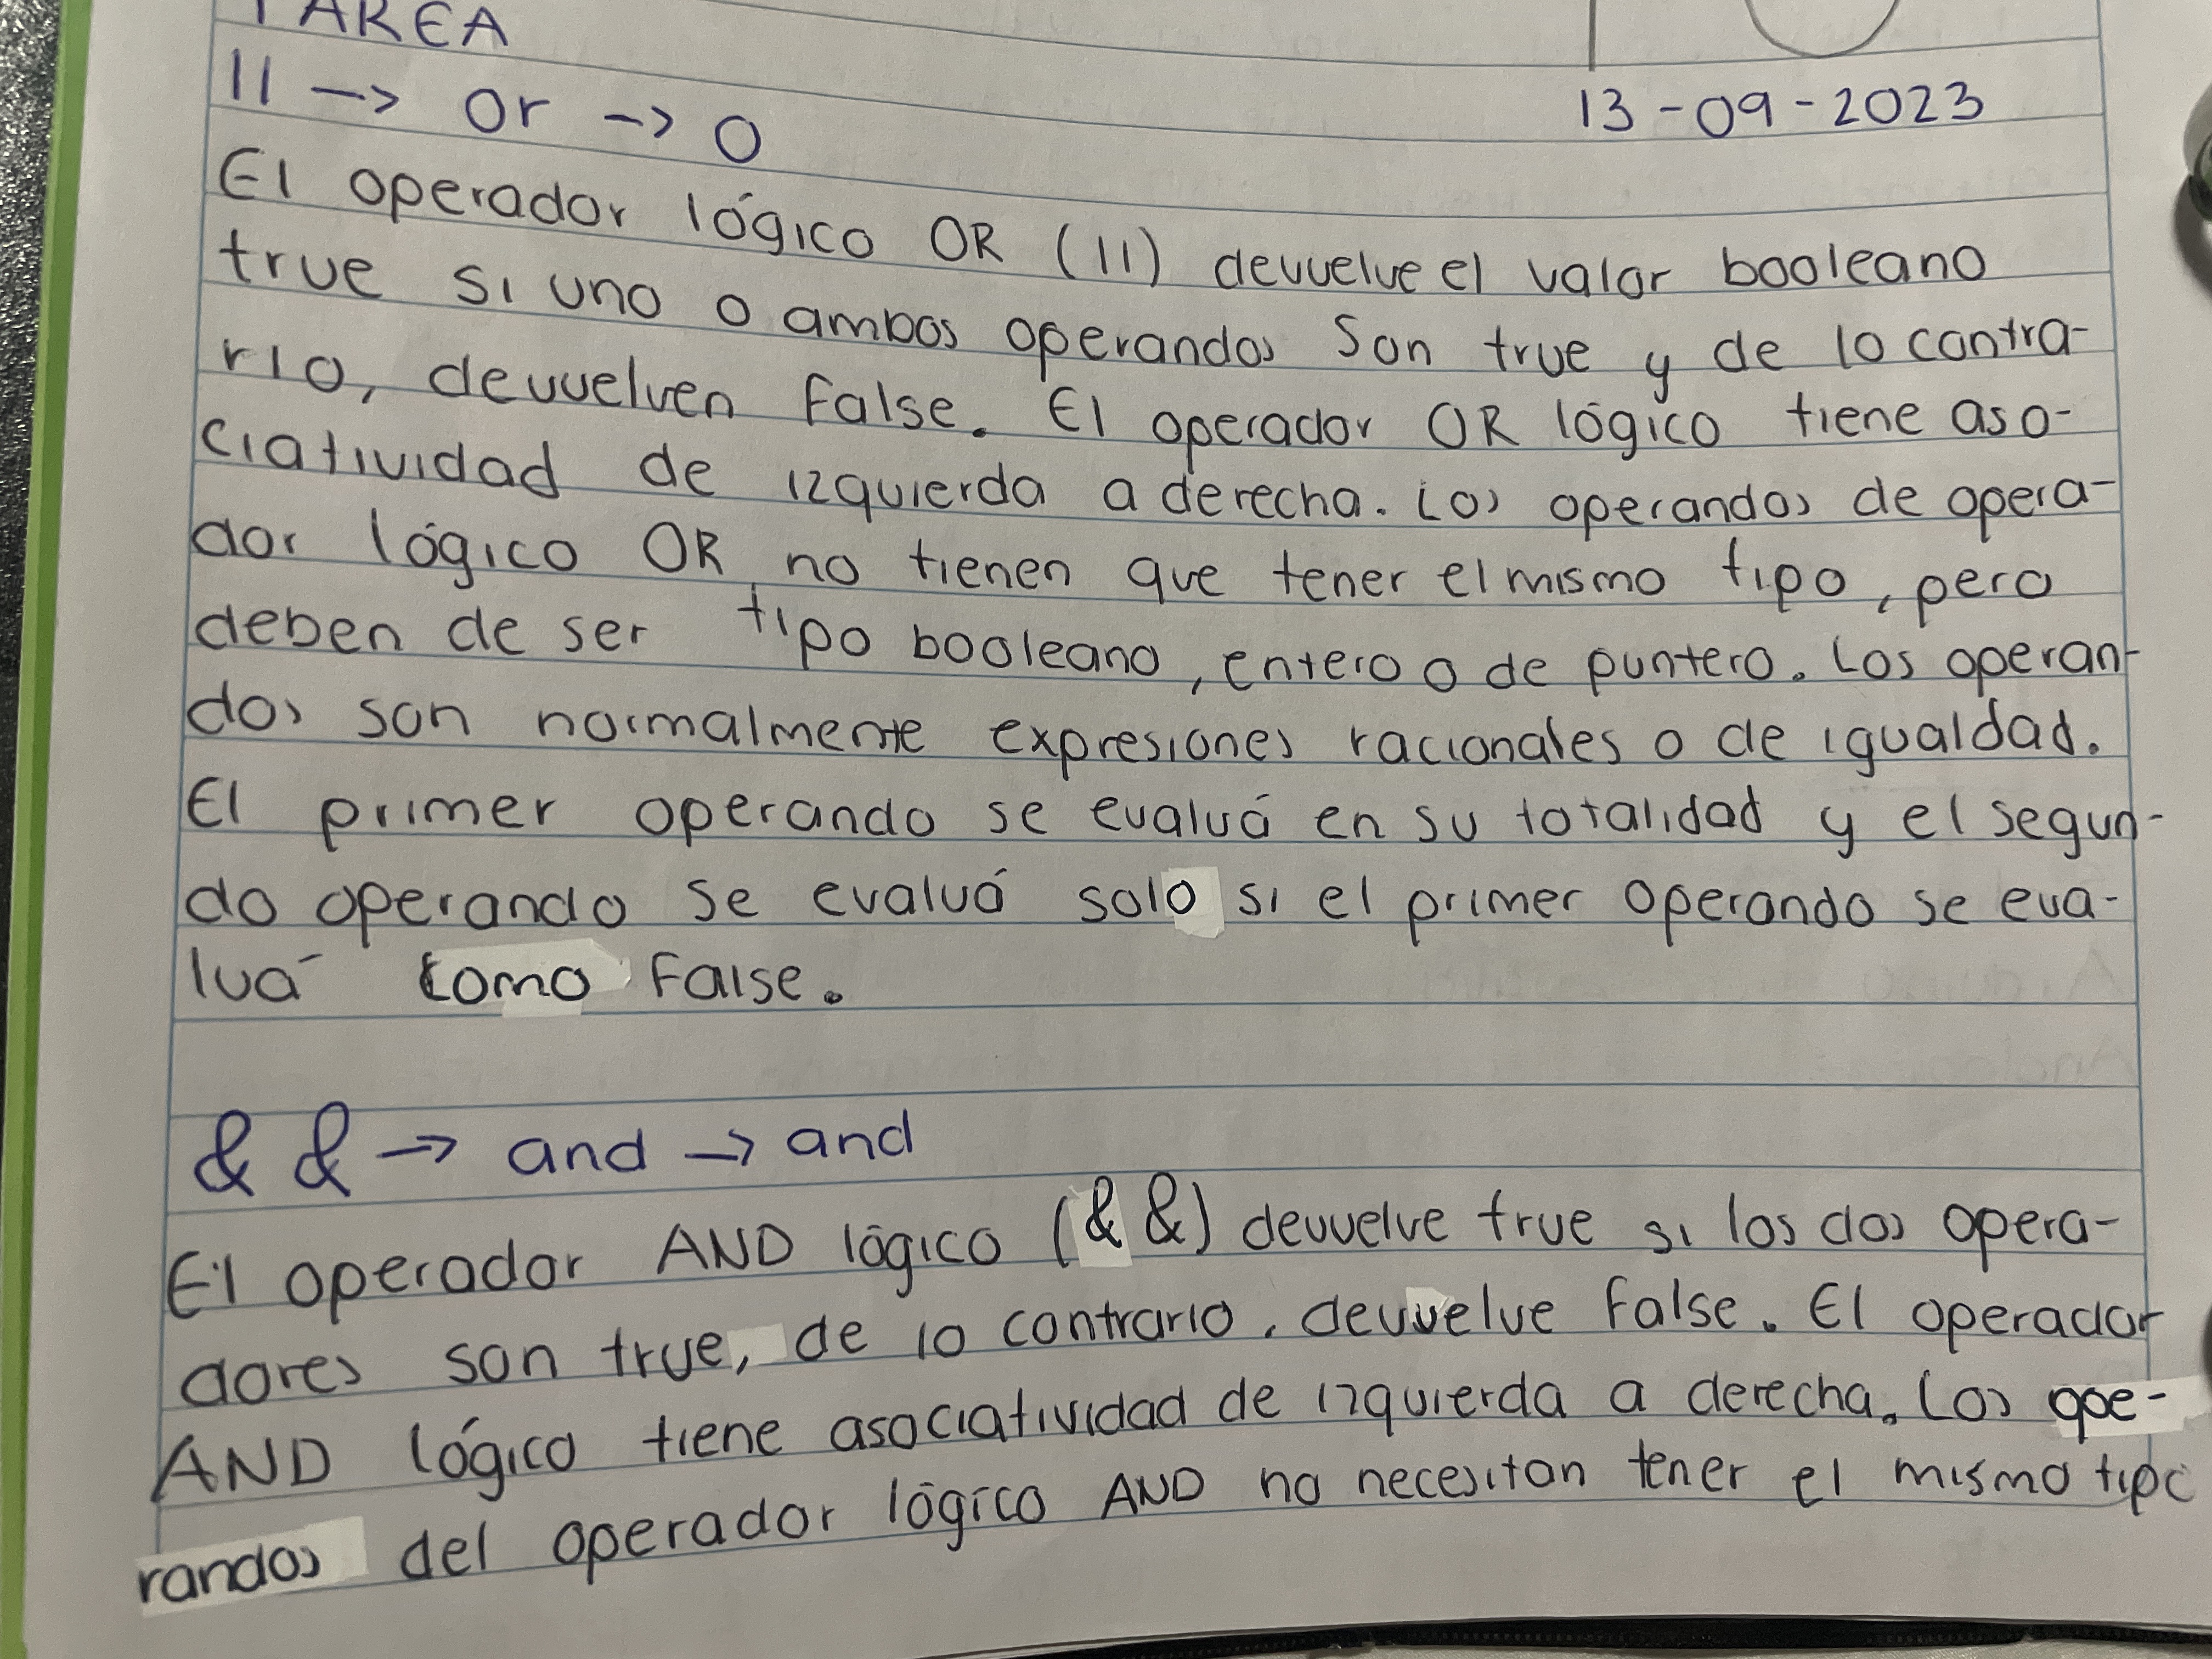 TAREA
|| -> Or -> O
13-09-2023
El operador lógico OR (||) devuelve el valor booleano
true si uno o ambos operandos son true y de lo contra-
rio, devuelven False. El operador OR lógico tiene aso-
ciatividad de izquierda a derecha. Los operandos de opera-
dor lógico OR no tienen que tener el mismo tipo, pero
deben de ser tipo booleano, entero o de puntero. Los operan-
dos son normalmente expresiones racionales o de igualdad.
El primer operando se evaluá en su totalidad y el segun-
do operando se evaluá solo si el primer operando se eva-
luá como False.
& & -> and -> and
El operador AND lógico (& &) devuelve true si los dos opera-
dores son true, de lo contrario, devuelve False. El operador
AND lógico tiene asociatividad de izquierda a derecha. Los ope-
randos del operador lógico AND no necesitan tener el mismo tipo